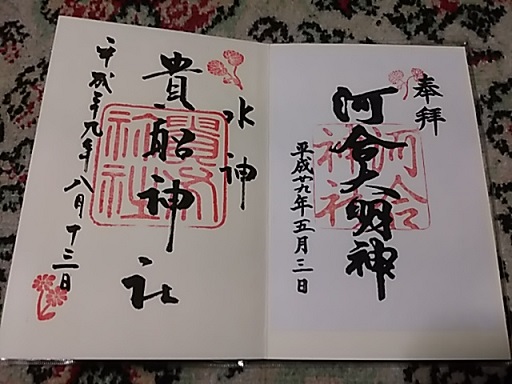 奉拝
河合大明神
河合
神社
平成廿九年五月三日
水神
貴船神社
貴船
神社
平成廿九年八月十三日